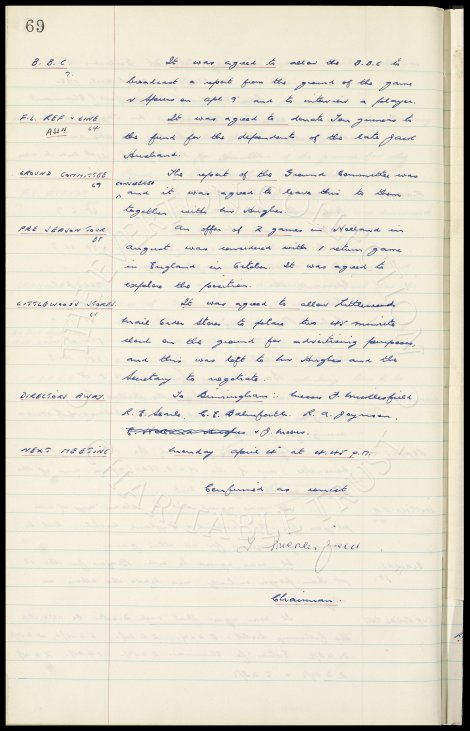 69
B.B.C. ?
It was agreed to allow the B.B.C to
broadcast a report from the ground of the game
v Spurs on Apl 9 and to interview a player.
F.L. REF & LINE ASSN 64
It was agreed to donate Ten guineas to
the fund for the dependents of the late Jack
Husband.
GROUND COMMITTEE 69
The report of the Ground Committee was
considered
and it was agreed to leave this to them
together with Mr Hughes.
PRE SEASON TOUR 68
An offer of 2 games in Holland in
August was considered with 1 return game
in England in October. It was agreed to
explore the position.
LITTLEWOODS STORES 61
It was agreed to allow Littlewoods
Mail Order Stores to place two
on the ground for advertising purposes,
and this was left to Mr Hughes and the
Secretary to negotiate.
DIRECTORS AWAY.
To Birmingham: Messrs F. Micklesfield
R. E. Searle. C. E. Balmforth. R. A. Joynson.
& J. Mears.
NEXT MEETING
Monday April 4th at 4.45 p.m.
Confirmed as correct
Chairman.
THE CHARITABLE TRUST